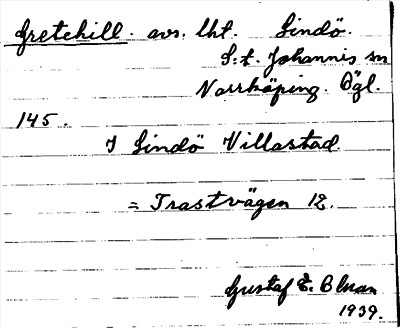 Gretehill. avs. lht. Lindö.
S:t. Johannis sn
Norrköping. Ögl.
145.
I Lindö Villastad
= Trastvägen 12.
Gustaf E. Blman
1939.